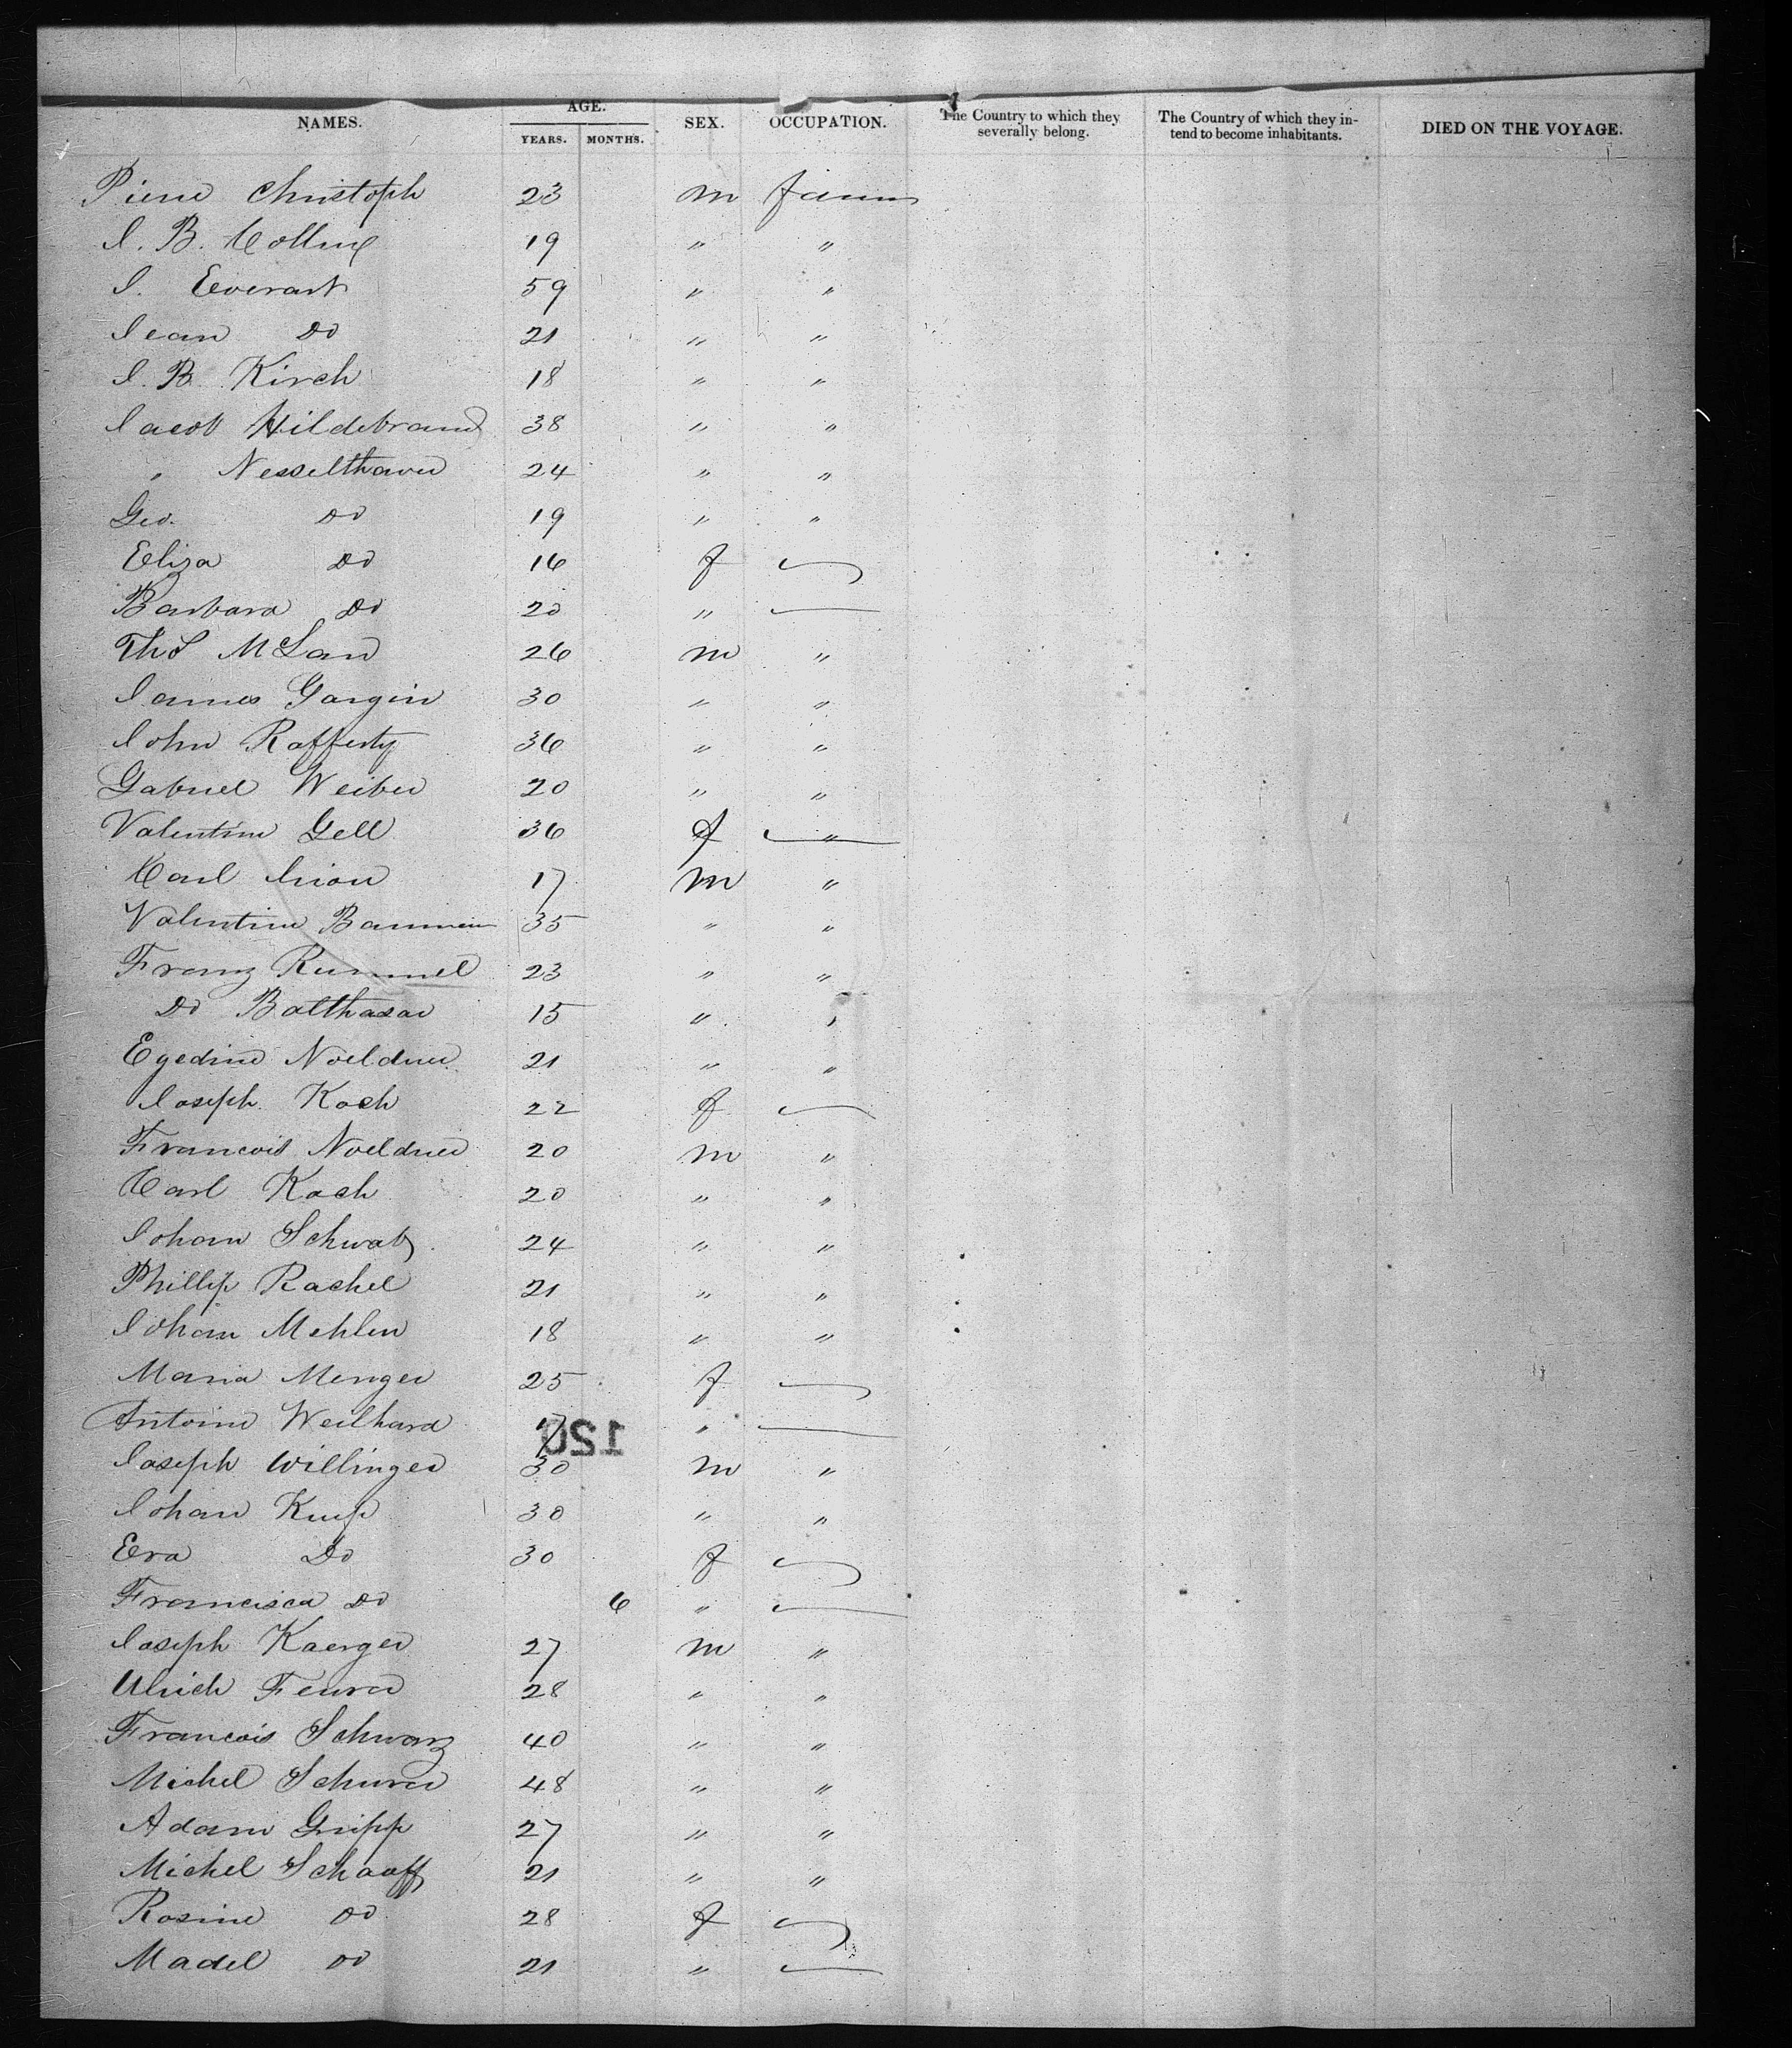 NAMES. AGE. YEARS. MONTHS. SEX. OCCUPATION. The Country to which they severally belong. The Country of which they intend to become inhabitants. DIED ON THE VOYAGE.
Pierre Christoph 23 m farmer
J. B. Colling 19 " "
J. Everart 59 " "
Jean Do 21 " "
J. B. Kirch 18 " "
Jacob Hildebrand 38 " "
" Nesselthaver 24 " "
Geo. Do 19 " "
Eliza Do 16 f
Barbara Do 20 "
Thos McLan 26 m "
James Gargin 30 " "
John Rafferty 36 " "
Gabriel Weiber 20 " "
Valentine Gell 36 f "
Carl 17 m "
Valentine 35 " "
Franz Rummel 23 " "
Do Balthasar 15 " "
Egedine Noeldner 21 " "
Joseph Koch 22 f
Francois Noeldner 20 m "
Carl Koch 20 " "
Johan Schwab 24 " "
Phillip Rachel 21 " "
Johan Mehlen 18 " "
Maria Menger 25 f
Antoine Weilhard 17 "
120
Joseph Willinger 30 m "
Johan Kuip 30 " "
Eva Do 30 f
Francisca Do 6 "
Joseph Kaerger 27 m "
Ulrich Feurer 28 " "
Francois Schwarz 40 " "
Michel Schurer 48 " "
Adam Gripp 27 " "
Michel Schaaff 21 " "
Rosine Do 28 f
Madel Do 21 "